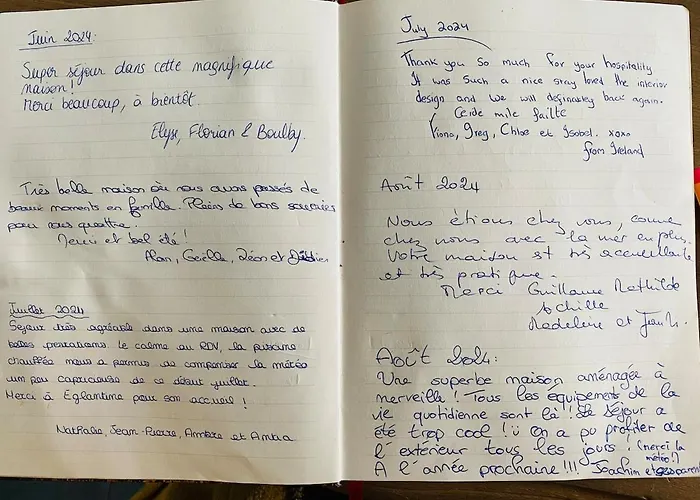 Juin 2024:
Super séjour dans cette magnifique
maison!
Merci beaucoup, à bientôt.
Elyse, Florian & Boulby.
Très belle maison où nous avons passés de
beaux moments en famille. Pleins de bons souvenirs
pour nous quattre.
Merci et bel été!
Alan, Léon et
Juillet 2024
Séjour très agréable dans une maison avec de
belles prestations. Le calme au RDV, la piscine
chauffée nous a permis de compenser la météo
un peu capricieuse de ce début juillet.
Merci à Eglantine pour son accueil!
Nathalie, Jean-Pierre, Ambre et
July 2024
Thank you so much for your hospitality
It was such a nice stay loved the interior
design and we will definetley back again.
Ceide mile failte
Fiona, Greg, Chloe et Isobel. xoxo
from Ireland
Août 2024
Nous étions chez vous, comme
chez nous avec la mer en plus.
Votre maison est très accueillante
et très pratique.
Merci Guillaume Mathilde
Achille
Madeleine et
Août 2024:
Une superbe maison aménagée à
merveille! Tous les équipements de la
vie quotidienne sont là! Le séjour a
été trop cool! ü On a pu profiter de
l'extérieur tous les jours. (merci la
météo!)
A l'année prochaine!!! Joachim et